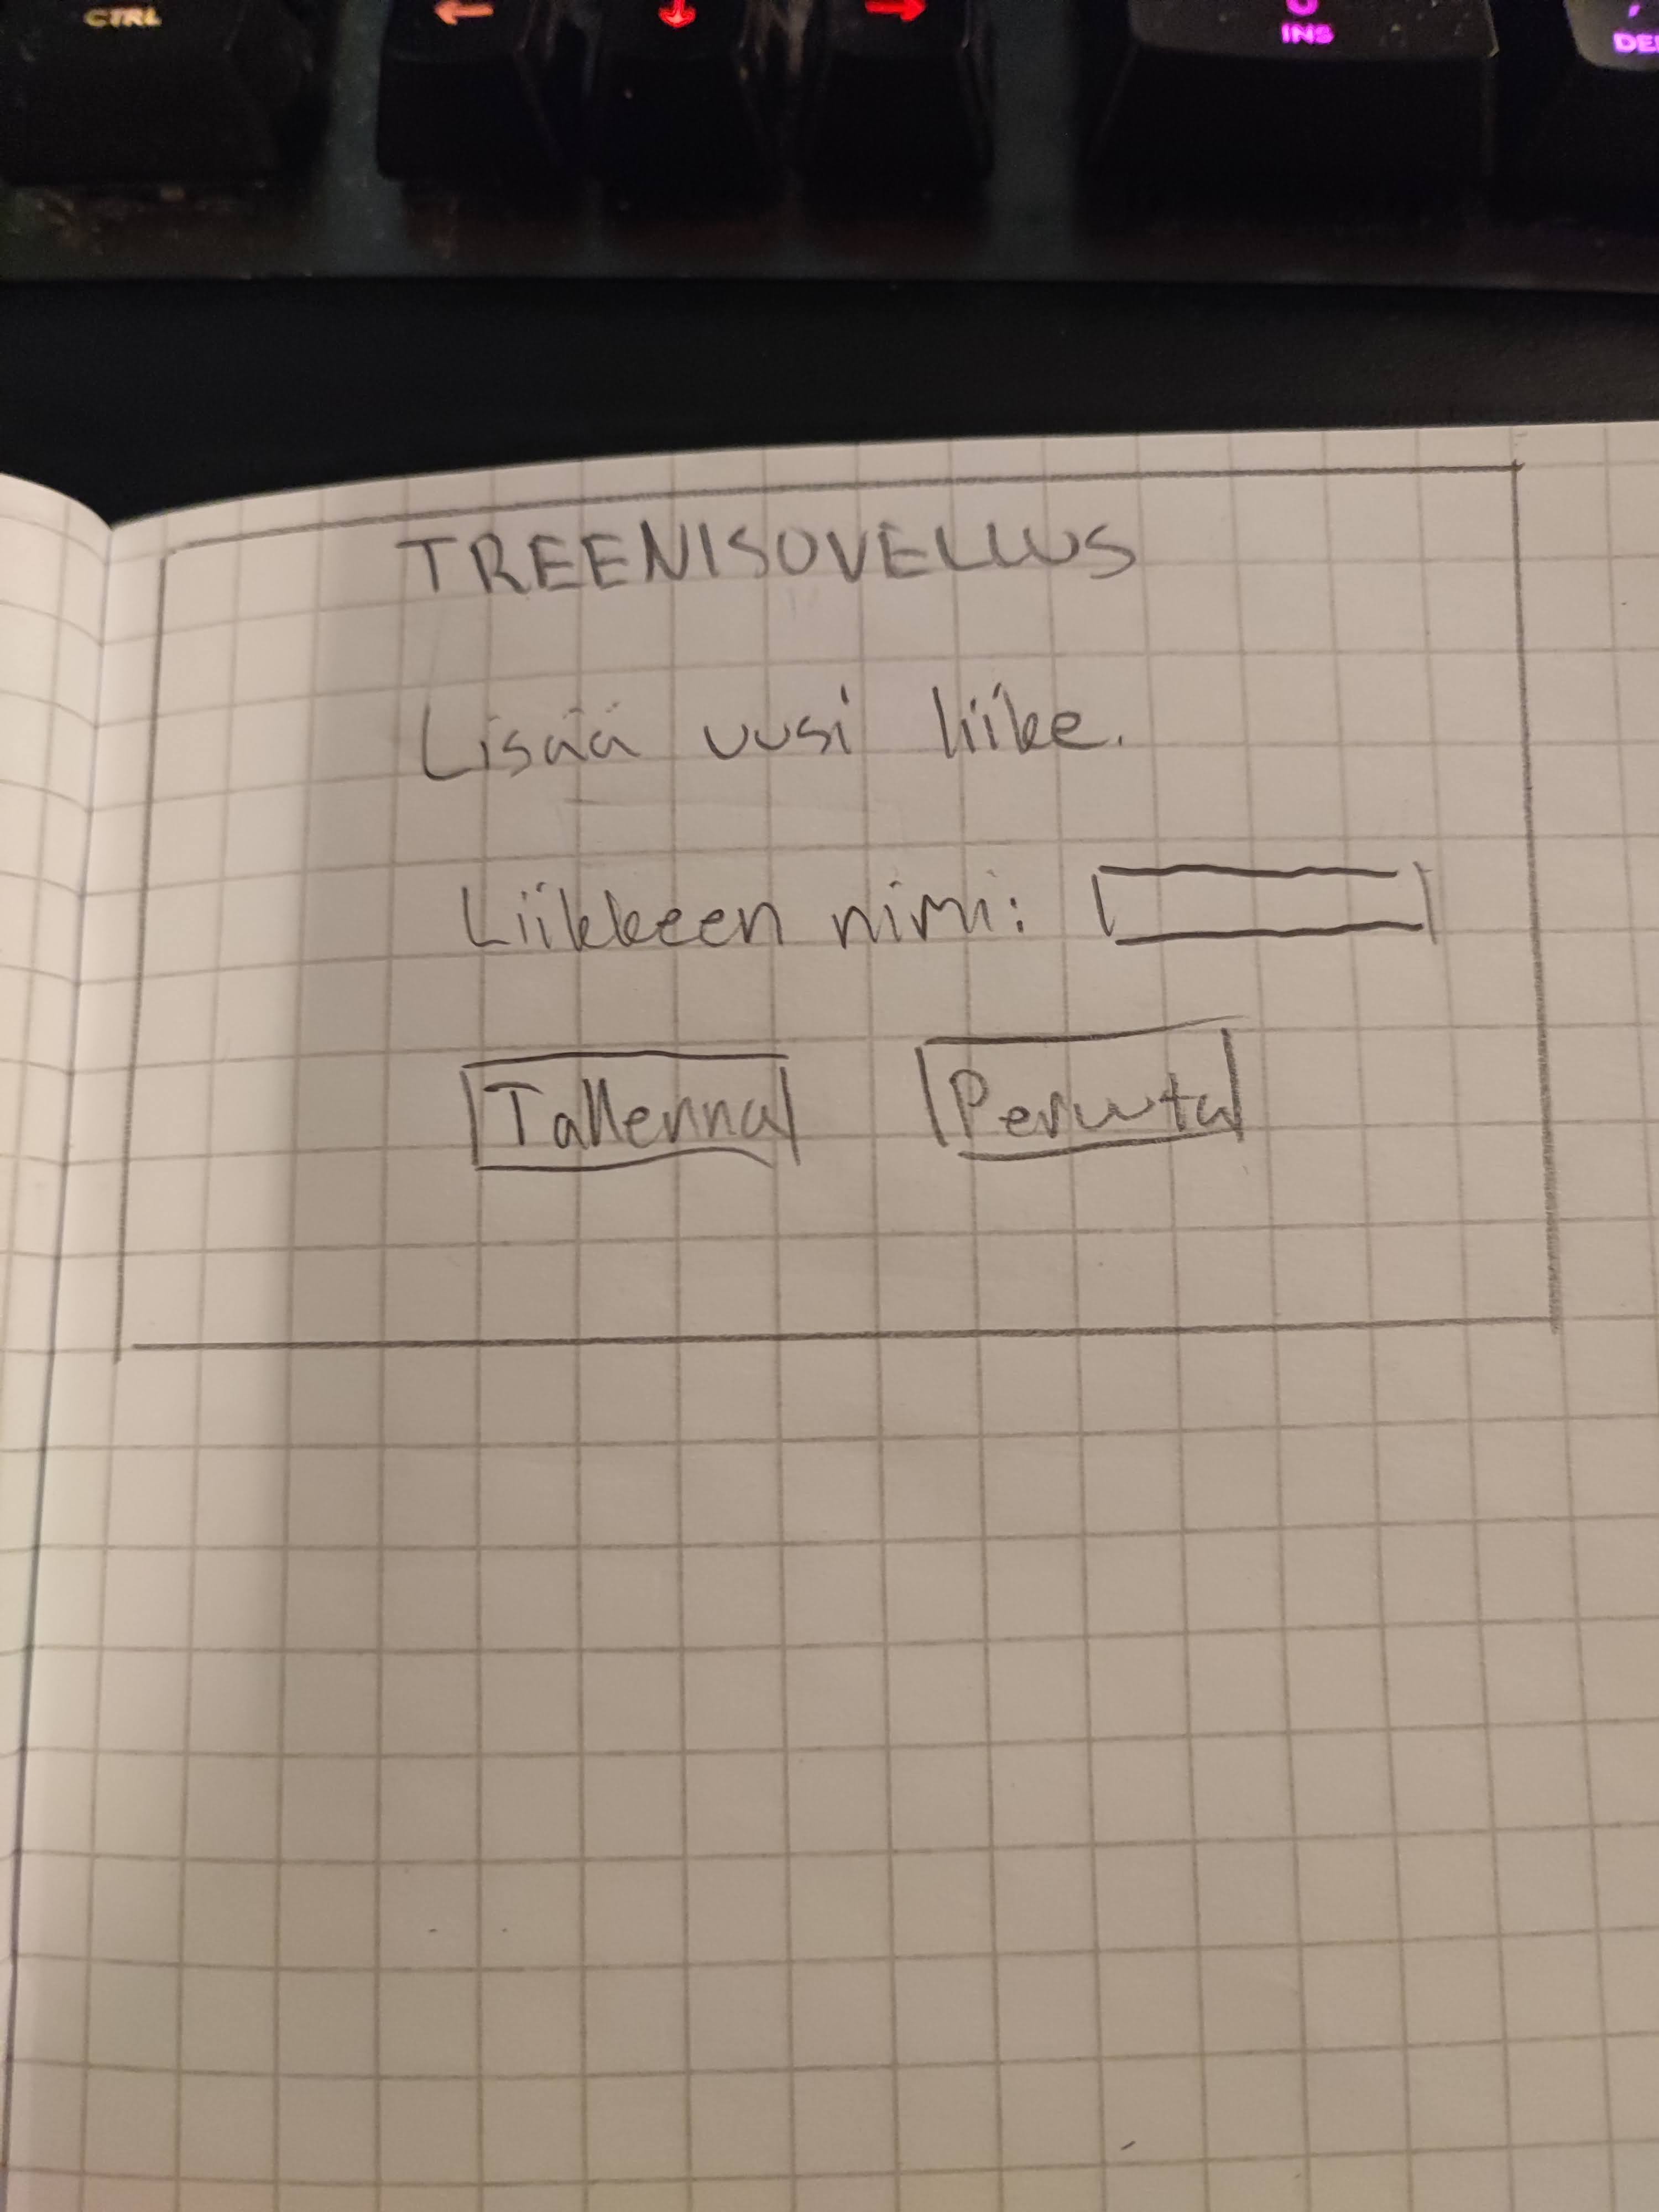 CTRL ← ↓ → INS
TREENISOVELLUS
Lisää uusi liike.
Liikkeen nimi:
Tallenna Peruuta